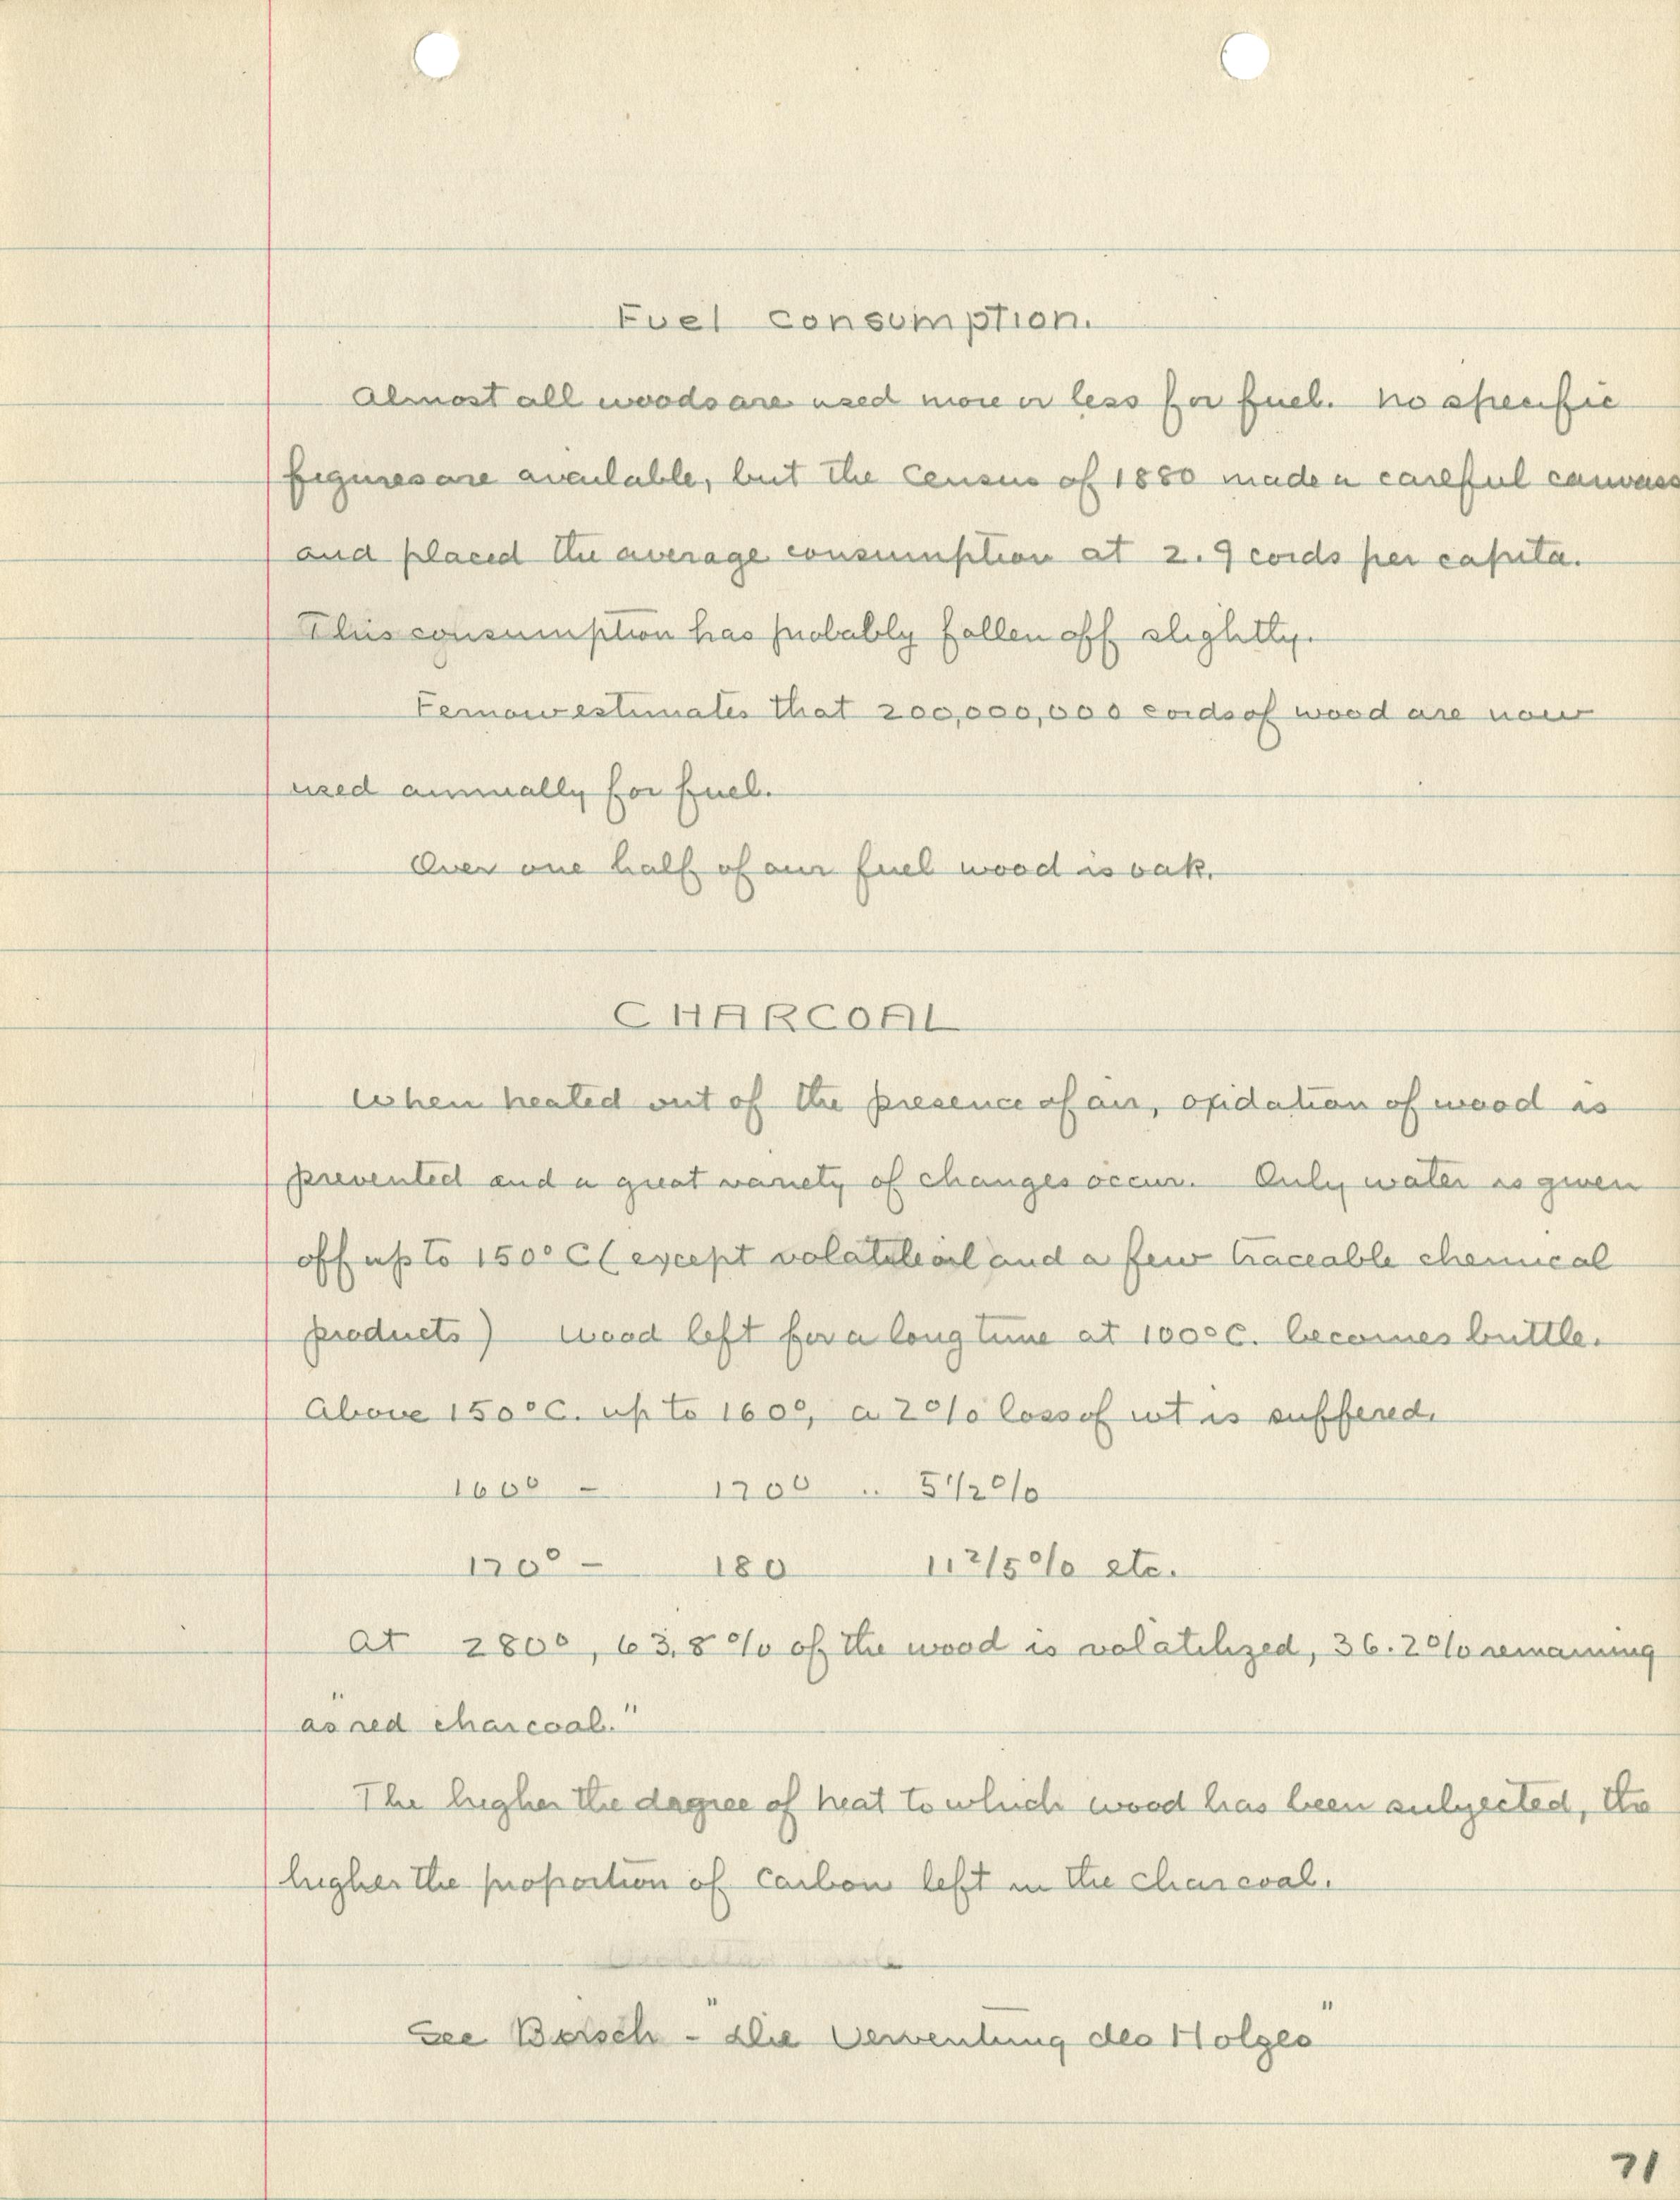 Fuel Consumption.
Almost all woods are used more or less for fuel. No specific
figures are available, but the Census of 1880 made a careful canvass
and placed the average consumption at 2.9 cords per capita.
This consumption has probably fallen off slightly.
Fernow estimates that 200,000,000 cords of wood are now
used annually for fuel.
Over one half of our fuel wood is oak.
CHARCOAL
When heated out of the presence of air, oxidation of wood is
prevented and a great variety of changes occur. Only water is given
off up to 150° C (except volatile oil and a few traceable chemical
products) Wood left for a long time at 100° C. becomes brittle.
Above 150° C. up to 160°, a 2% loss of wt is suffered.
160° - 170° .. 5 1/2%
170° - 180 11 2/5% etc.
At 280°, 63.8% of the wood is volatilized, 36.2% remaining
"as red charcoal."
The higher the dagree of heat to which wood has been subjected, the
higher the proportion of carbon left in the charcoal.
See Bersch - "Die Verwentung des Holzes"
71